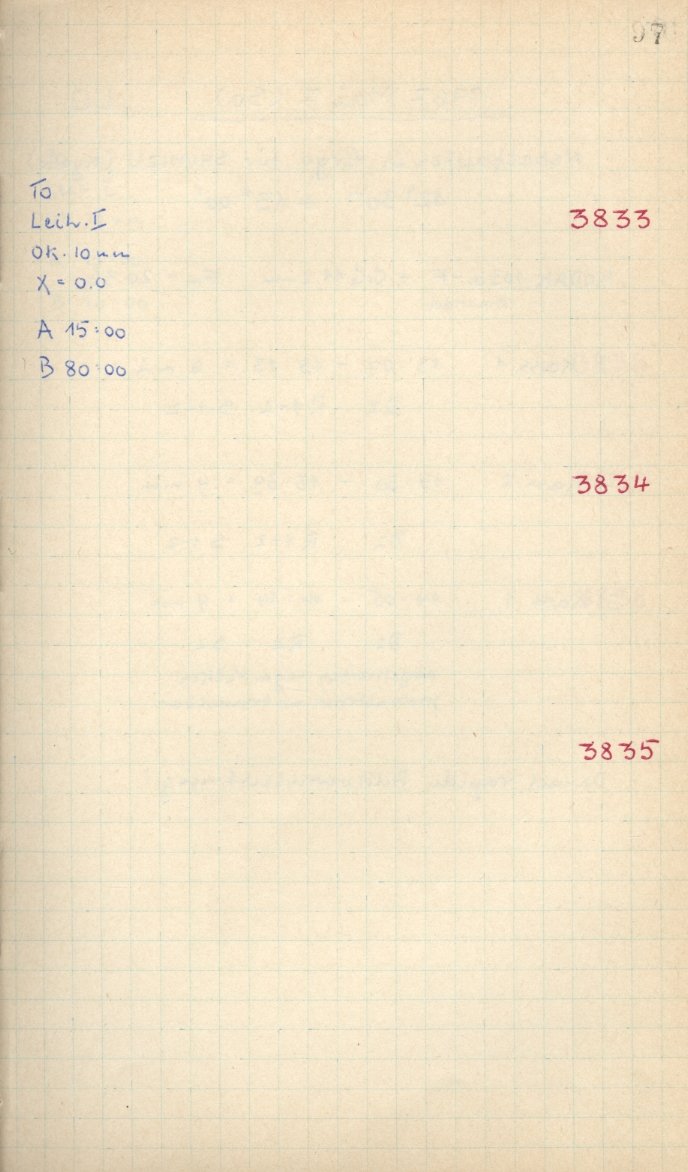 97
To
Leitr. I
3833
Ok. 10 mm
X = 0.0
A 15:00
B 80:00
3834
3835